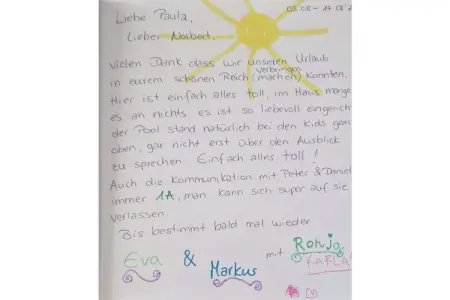 03.08 – 17.08.2
Liebe Paula,
Lieber Norbert.
Vielen Dank dass wir unseren Urlaub
verbringen
in eurem schönen Reich (machen) konnten.
Hier ist einfach alles toll, im Haus mange
es an nichts, es ist so liebevoll eingerich
der Pool stand natürlich bei den Kids gan
oben, gar nicht erst über den Ausblick
zu sprechen. Einfach alles toll!
Auch die Kommunikation mit Peter & Daniel
immer 1A, man kann sich super auf sie
verlassen
Bis bestimmt bald mal wieder
Eva & Markus mit Ronja
KARLA